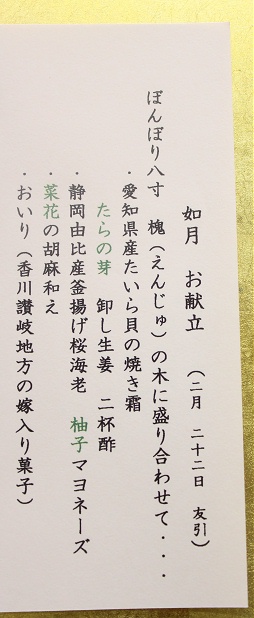 如月　お献立　（二月　二十二日　友引）
ぼんぼり八寸　槐（えんじゅ）の木に盛り合わせて・・・
・愛知県産たいら貝の焼き霜
たらの芽　卸し生姜　二杯酢
・静岡由比産釜揚げ桜海老　柚子マヨネーズ
・菜花の胡麻和え
・おいり（香川讃岐地方の嫁入り菓子）